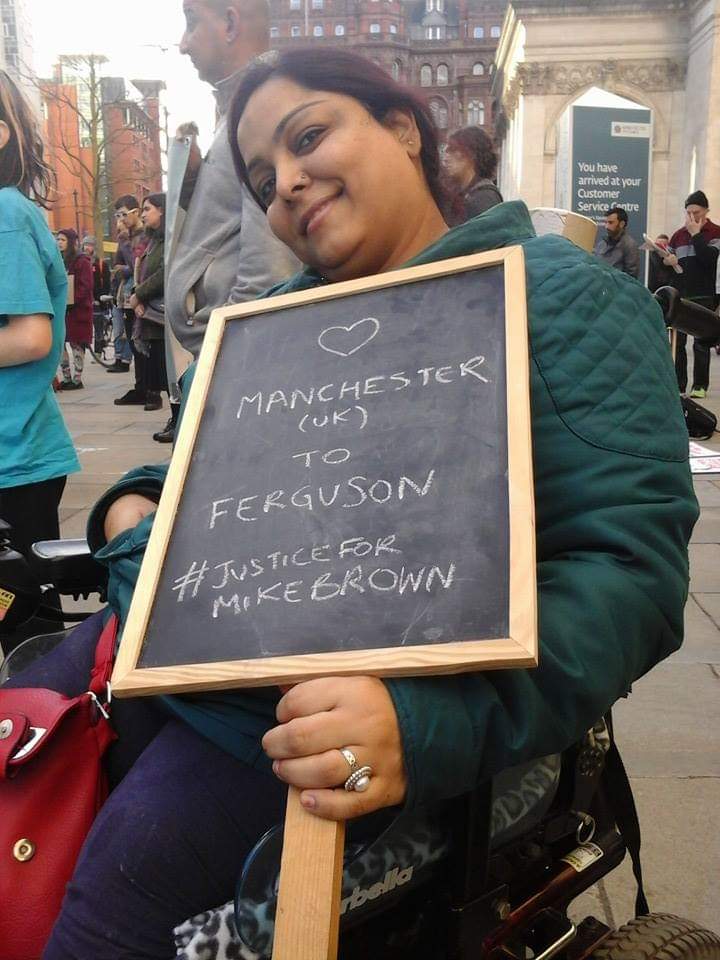 You have
arrived at your
Customer
Service Centre
MANCHESTER
(UK)
TO
FERGUSON
#JUSTICE FOR
MIKE BROWN
rbella